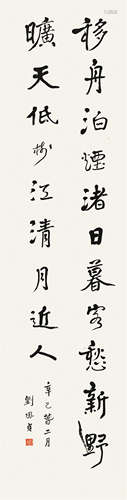 移舟泊煙渚日暮客愁新野
曠天低樹江清月近人
辛巳第二月